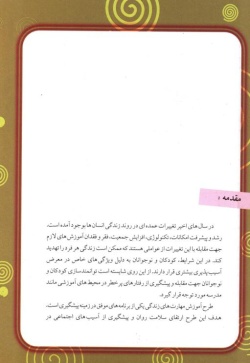 مقدمه
در سال‌های اخیر تغییرات عمده‌ای در روند زندگی انسان‌ها بوجود آمده است.
رشد و پیشرفت امکانات، تکنولوژی، افزایش جمعیت، فقر و فقدان آموزش‌های لازم
جهت مقابله با این تغییرات از عواملی هستند که ممکن است زندگی هر فرد را تهدید
کند. در این شرایط، کودکان و نوجوانان به دلیل ویژگی‌های خاص در معرض
آسیب‌پذیری بیشتری قرار دارند. از این روی شایسته است توانمندسازی کودکان و
نوجوانان جهت مقابله و پیشگیری از رفتارهای پرخطر در محیط‌های آموزشی مانند
مدرسه مورد توجه قرار گیرد.
طرح آموزش مهارت‌های زندگی یکی از برنامه‌های موفق در زمینه پیشگیری است.
هدف این طرح ارتقای سلامت روان و پیشگیری از آسیب‌های اجتماعی در